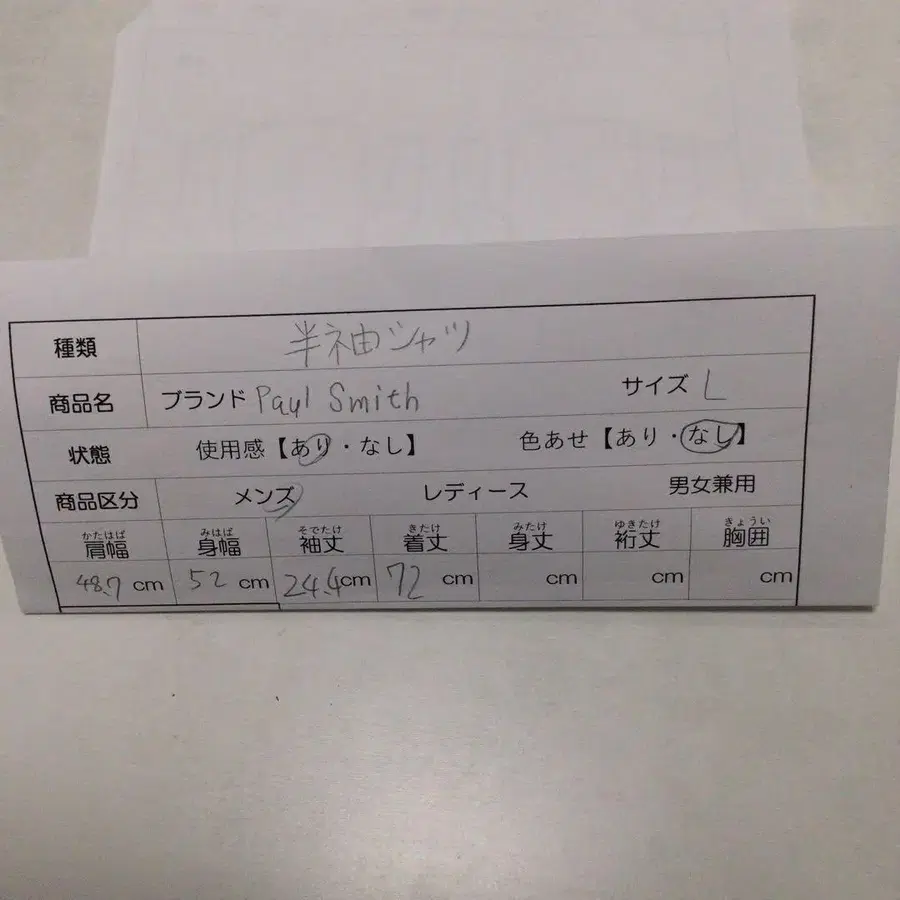 種類 半袖シャツ
商品名 ブランド Paul Smith サイズ L
状態 使用感【あり・なし】 色あせ【あり・なし】
商品区分 メンズ レディース 男女兼用
かたはば みはば そでたけ きたけ みたけ ゆきたけ きょうい
肩幅 身幅 袖丈 着丈 身丈 裄丈 胸囲
48.7 cm 52 cm 24.4cm 72 cm cm cm cm